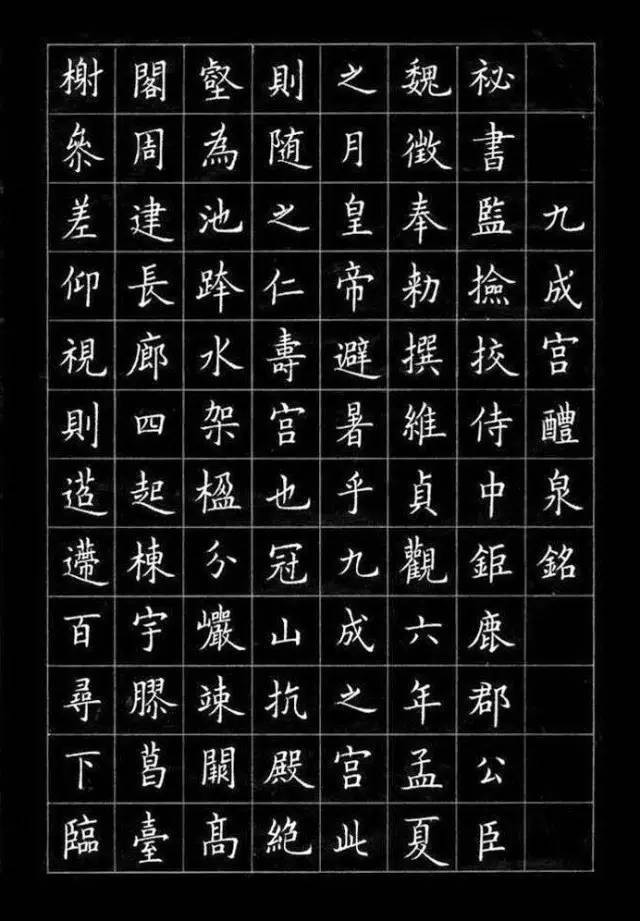 九成宫醴泉銘
祕書監撿挍侍中鉅鹿郡公臣
魏徵奉勑撰維貞觀六年孟夏
之月皇帝避暑乎九成之宫此
則随之仁壽宫也冠山抗殿絶
壑為池跨水架楹分巖竦闕高
閣周建長廊四起棟宇膠葛臺
榭叅差仰視則迢遰百尋下臨